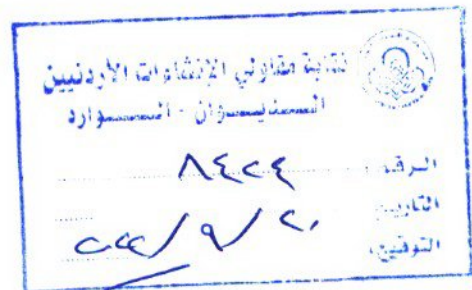 نقابة مقاولي الإنشاءات الأردنيين
الـديـوان - الـوارد
الرقم ٨٤٢٤
التاريخ ٢٠/٩/٢٠٢٢
التوقيع: